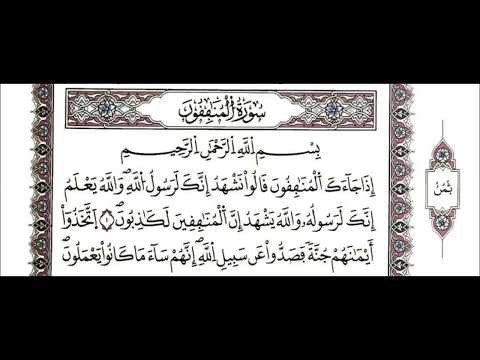 سُورَةُ الْمُنَٰفِقُونَ
بِسْمِ اللَّهِ الرَّحْمَٰنِ الرَّحِيمِ
إِذَا جَآءَكَ الْمُنَٰفِقُونَ قَالُوا۟ نَشْهَدُ إِنَّكَ لَرَسُولُ اللَّهِۖ وَاللَّهُ يَعْلَمُ
إِنَّكَ لَرَسُولُهُۥ وَاللَّهُ يَشْهَدُ إِنَّ الْمُنَٰفِقِينَ لَكَٰذِبُونَۖ ١ اَ۪تَّخَذُوٓا۟
أَيْمَٰنَهُمْ جُنَّةٗ فَصَدُّوا۟ عَن سَبِيلِ اللَّهِۖ إِنَّهُمْ سَآءَ مَا كَانُوا۟ يَعْمَلُونَۖ
ثُمُنُ